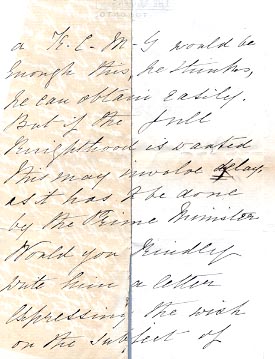 a K. C. M. G would be
Enough this, he thinks,
he can obtain Easily.
But if the full
Knighthood is wanted
this may involve delay,
as it has to be done
by the Prime Minister
Would you kindly
write him a letter
expressing the wish
on the subject of